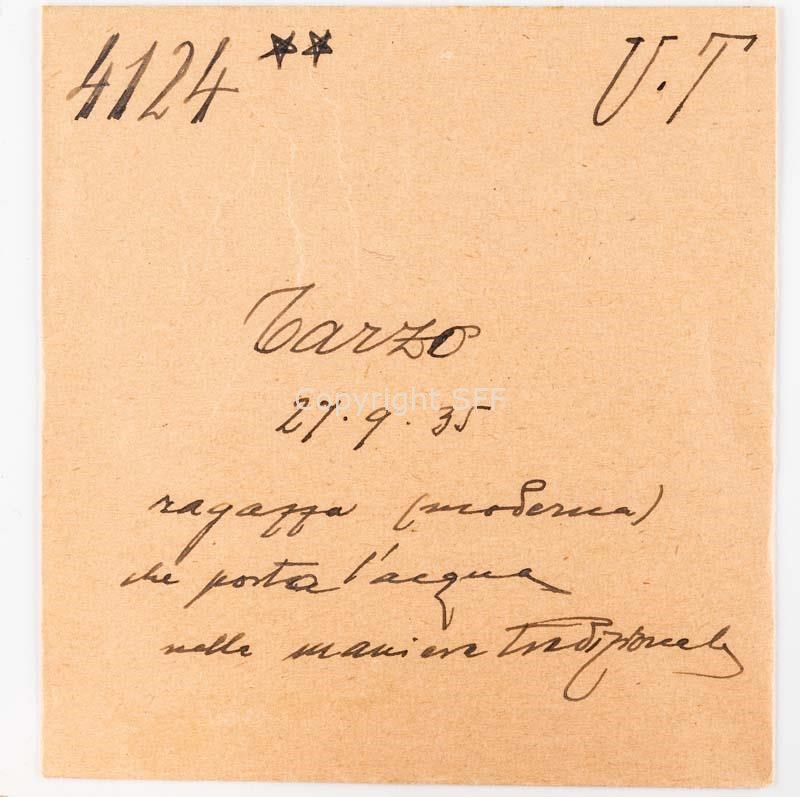 4124 ** U.T
Tarzo
Copyright SFF
27.9.35
ragazza (moderna)
che porta l'acqua
nella maniera tradizionale